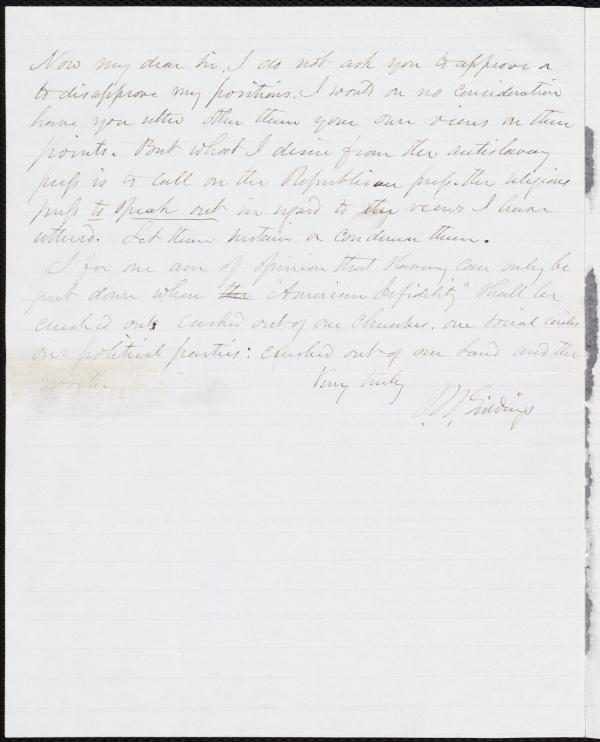 Now my dear Sir, I do not ask you to approve or
to disapprove my positions. I would on no consideration
have you utter other than your own views on these
points. But what I desire from the antislavery
press is to call on the Republican press. the religious
press to speak out in regard to the views I have
uttered. Let them sustain or condemn them.
I for one am of opinion that slavery can only be
put down when the "American infidelity" shall be
crushed out; crushed out of our churches. our social circles
our political parties: crushed out of our land and the
world.
Very truly
J R Giddings